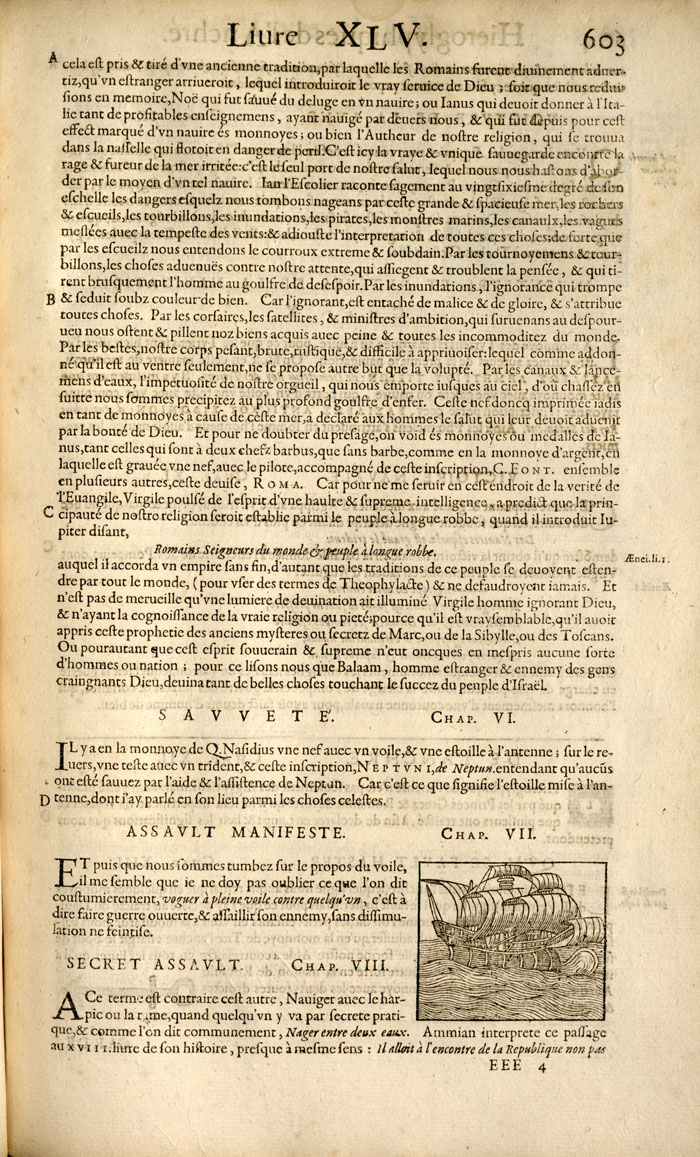 Liure XLV. 603
A
cela est pris & tiré d'vne ancienne tradition, par laquelle les Romains furent diuinement aduer-
tiz, qu'vn estranger arriueroit, lequel introduiroit le vray seruice de Dieu ; soit que nous redui-
sions en memoire, Noë qui fut sauué du deluge en vn nauire; ou Ianus qui deuoit donner à l'Ita-
lie tant de profitables enseignemens, ayant nauigé par deuers nous, & qui fut depuis pour cest
effect marqué d'vn nauire és monnoyes; ou bien l'Autheur de nostre religion, qui se trouua
dans la nasselle qui flotoit en danger de peril. C'est icy la vraye & vnique sauuegarde encontre la
rage & fureur de la mer irritée: c'est le seul port de nostre salut, lequel nous nous hastons d'abor-
der par le moyen d'vn tel nauire. Ian l'Escolier raconte sagement au vingtsixiesme degré de son
eschelle les dangers esquelz nous tombons nageans par ceste grande & spacieuse mer, les rochers
& escueils, les tourbillons, les inundations, les pirates, les monstres marins, les canaulx, les vagues
meslées auec la tempeste des vents: & adiouste l'interpretation de toutes ces choses: de sorte que
par les escueilz nous entendons le courroux extreme & soubdain. Par les tournoyemens & tour-
billons, les choses aduenuës contre nostre attente, qui assiegent & troublent la pensée, & qui ti-
rent brusquement l'homme au goulfre de desespoir. Par les inundations, l'ignorance qui trompe
B & seduit soubz couleur de bien. Car l'ignorant, est entaché de malice & de gloire, & s'attribue
toutes choses. Par les corsaires, les satellites, & ministres d'ambition, qui suruenans au despour-
ueu nous ostent & pillent noz biens acquis auec peine & toutes les incommoditez du monde.
Par les bestes, nostre corps pesant, brute, rustique, & difficile à appriuoiser: lequel comme addon-
né qu'il est au ventre seulement, ne se propose autre but que la volupté. Par les canaux & lance-
mens d'eaux, l'impetuosité de nostre orgueil, qui nous emporte iusques au ciel, d'où chassez en
suitte nous sommes precipitez au plus profond goulfre d'enfer. Ceste nef doncq imprimée iadis
en tant de monnoyes à cause de ceste mer, a declaré aux hommes le salut qui leur deuoit aduenir
par la bonté de Dieu. Et pour ne doubter du presage, on void és monnoyes ou medalles de Ia-
nus, tant celles qui sont à deux chefz barbus, que sans barbe, comme en la monnoye d'argent, en
laquelle est grauée vne nef, auec le pilote, accompagné de ceste inscription, C. FONT. ensemble
en plusieurs autres, ceste deuise, ROMA. Car pour ne me seruir en cest endroit de la verité de
l'Euangile, Virgile poulsé de l'esprit d'vne haulte & supreme intelligence, a predict que la prin-
C cipauté de nostre religion seroit establie parmi le peuple à longue robbe, quand il introduit Iu-
piter disant,
Romains Seigneurs du monde & peuple à longue robbe.
Æneï. li. 1.
auquel il accorda vn empire sans fin, d'autant que les traditions de ce peuple se deuoyent esten-
dre par tout le monde, (pour vser des termes de Theophylacte) & ne defaudroyent iamais. Et
n'est pas de merueille qu'vne lumiere de deuination ait illuminé Virgile homme ignorant Dieu,
& n'ayant la cognoissance de la vraie religion ou pieté; pource qu'il est vraysemblable, qu'il auoit
appris ceste prophetie des anciens mysteres ou secretz de Marc, ou de la Sibylle, ou des Toscans.
Ou pourautant que cest esprit souuerain & supreme n'eut oncques en mespris aucune sorte
d'hommes ou nation ; pour ce lisons nous que Balaam, homme estranger & ennemy des gens
craingnants Dieu, deuina tant de belles choses touchant le succez du peuple d'Israël.
SAVVETÉ. CHAP. VI.
IL y a en la monnoye de Q. Nasidius vne nef auec vn voile, & vne estoille à l'antenne ; sur le re-
uers, vne teste auec vn trident, & ceste inscription, NEPTVNI, de Neptun. entendant qu'aucũs
ont esté sauuez par l'aide & l'assistence de Neptun. Car c'est ce que signifie l'estoille mise à l'an-
D tenne, dont i'ay parlé en son lieu parmi les choses celestes.
ASSAVLT MANIFESTE. CHAP. VII.
ET puis que nous sommes tumbez sur le propos du voile,
il me semble que ie ne doy pas oublier ce que l'on dit
coustumierement, voguer à pleine voile contre quelqu'vn, c'est à
dire faire guerre ouuerte, & assaillir son ennemy, sans dissimu-
lation ne feintise.
SECRET ASSAVLT. CHAP. VIII.
A Ce terme est contraire cest autre, Nauiger auec le har-
pic ou la rame, quand quelqu'vn y va par secrete prati-
que, & comme l'on dit communement, Nager entre deux eaux. Ammian interprete ce passage
au XVIII. liure de son histoire, presque à mesme sens : Il alloit à l'encontre de la Republique non pas
EEE 4